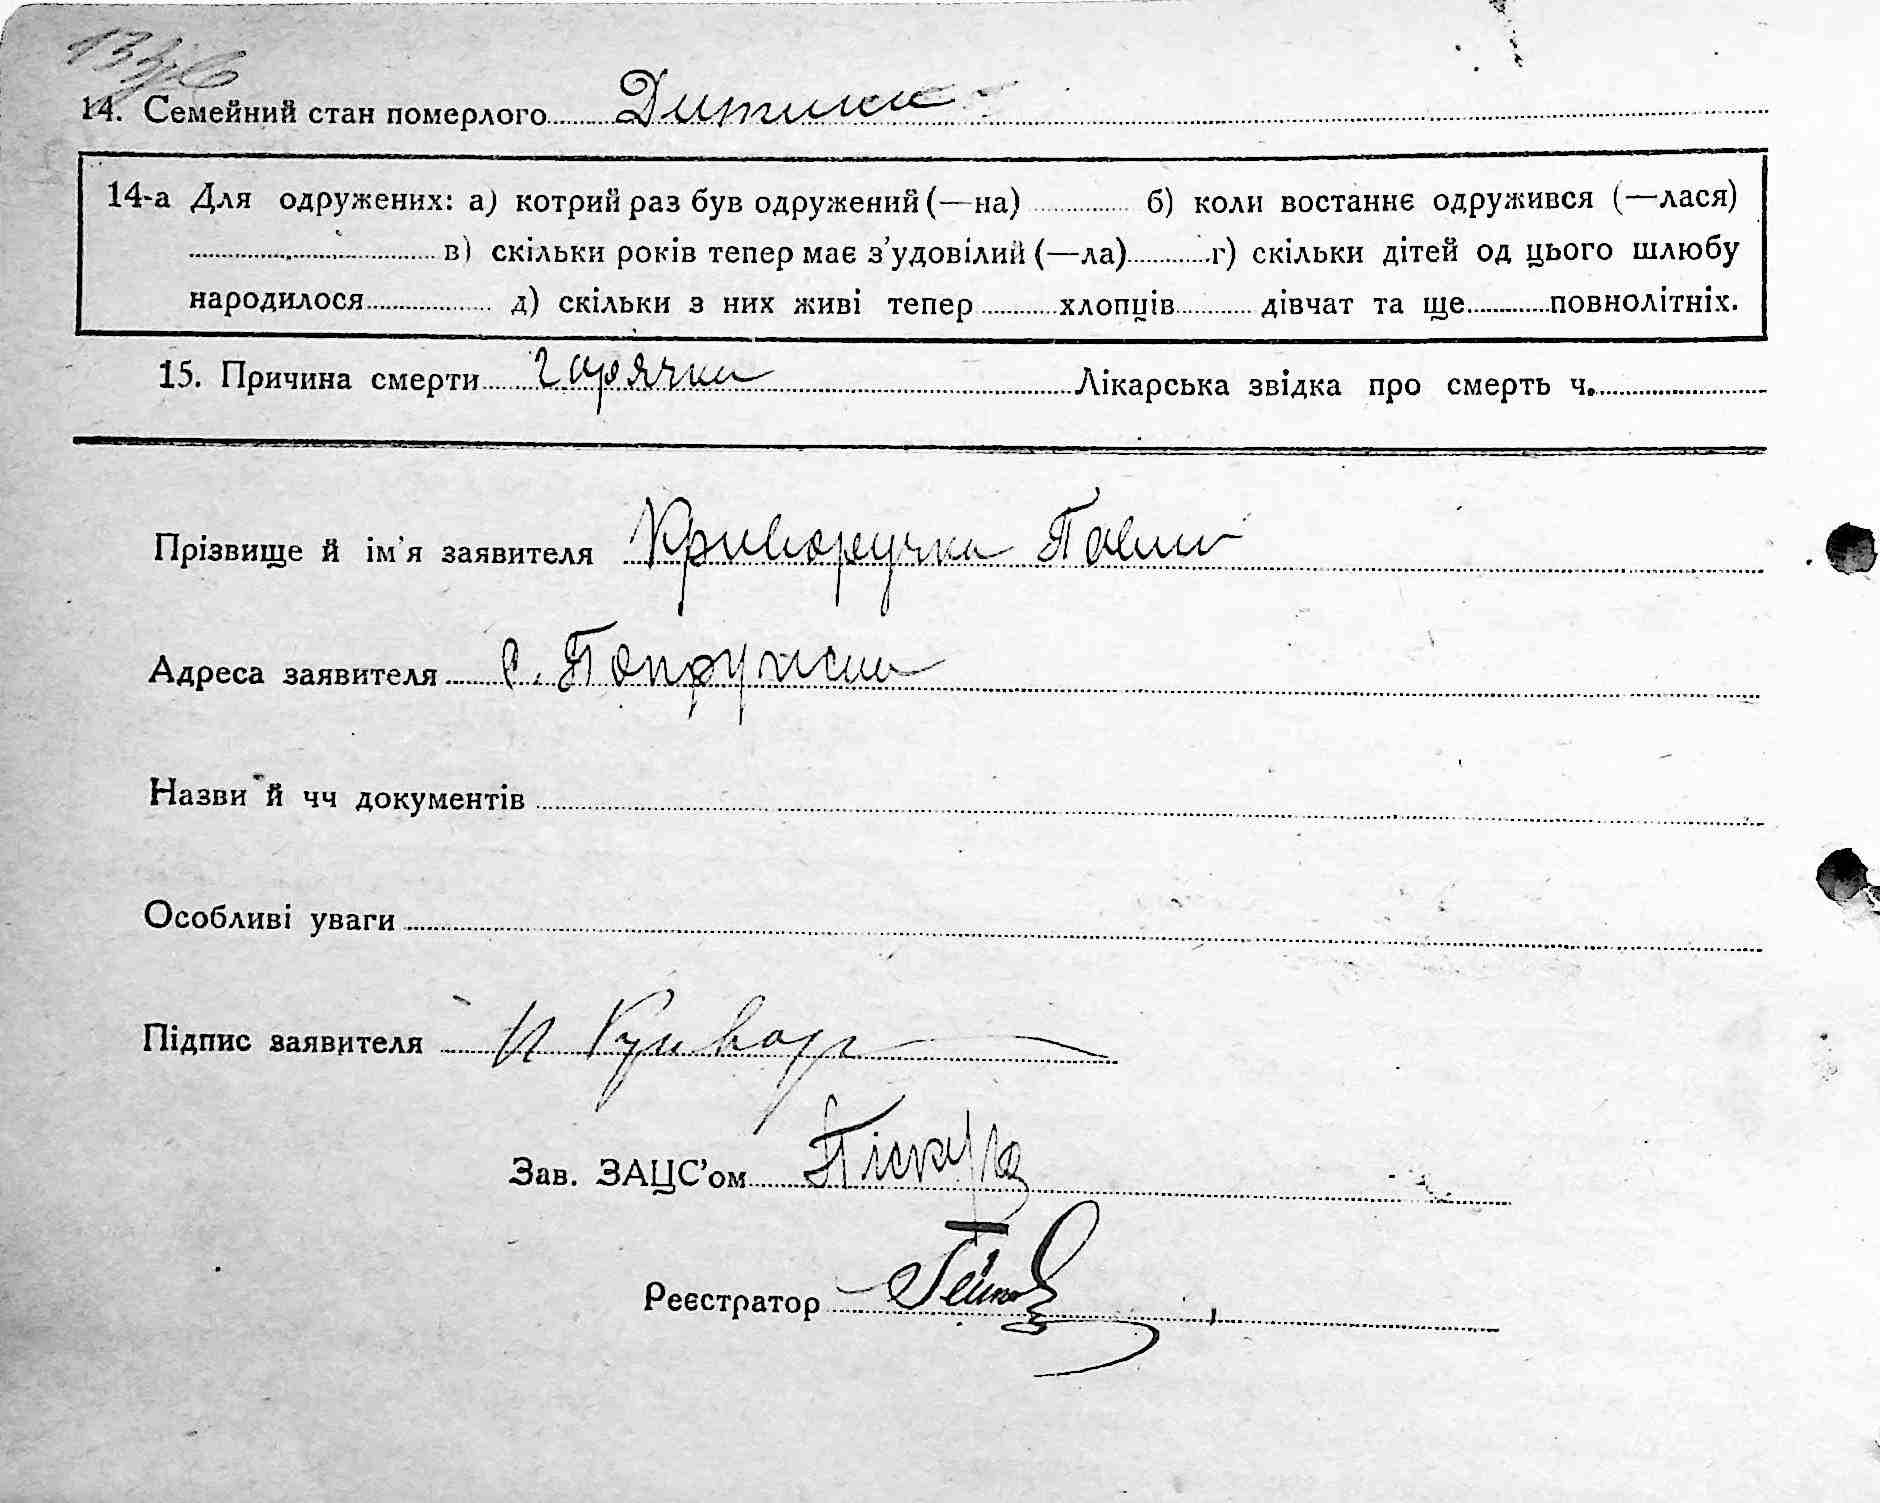 14. Семейний стан померлого Дитина
14-а Для одружених: а) котрий раз був одружений (—на) б) коли востаннє одружився (—лася)
в) скільки років тепер має з'удовілий (—ла) г) скільки дітей од цього шлюбу
народилося д) скільки з них живі тепер хлопців дівчат та ще повнолітніх.
15. Причина смерти Гарячка Лікарська звідка про смерть ч.
Прізвище й ім'я заявителя Криворучка Павло
Адреса заявителя с. Попружна
Назви й чч документів
Особливі уваги
Підпис заявителя П Кривор
Зав. ЗАЦС'ом
Реєстратор